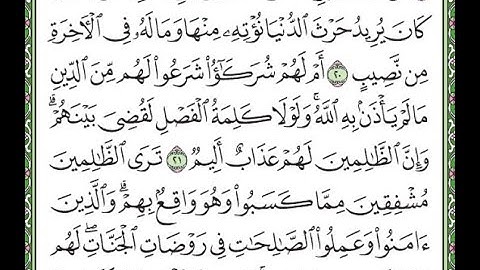 كَانَ يُرِيدُ حَرْثَ ٱلدُّنْيَا نُؤْتِهِۦ مِنْهَا وَمَا لَهُۥ فِى ٱلْـَٔاخِرَةِ
مِن نَّصِيبٍ ٢٠ أَمْ لَهُمْ شُرَكَٰٓؤُا۟ شَرَعُوا۟ لَهُم مِّنَ ٱلدِّينِ
مَا لَمْ يَأْذَنۢ بِهِ ٱللَّهُ ۚ وَلَوْلَا كَلِمَةُ ٱلْفَصْلِ لَقُضِىَ بَيْنَهُمْ ۗ
وَإِنَّ ٱلظَّٰلِمِينَ لَهُمْ عَذَابٌ أَلِيمٌ ٢١ تَرَى ٱلظَّٰلِمِينَ
مُشْفِقِينَ مِمَّا كَسَبُوا۟ وَهُوَ وَاقِعٌۢ بِهِمْ ۗ وَٱلَّذِينَ
ءَامَنُوا۟ وَعَمِلُوا۟ ٱلصَّٰلِحَٰتِ فِى رَوْضَاتِ ٱلْجَنَّاتِ ۖ لَهُم